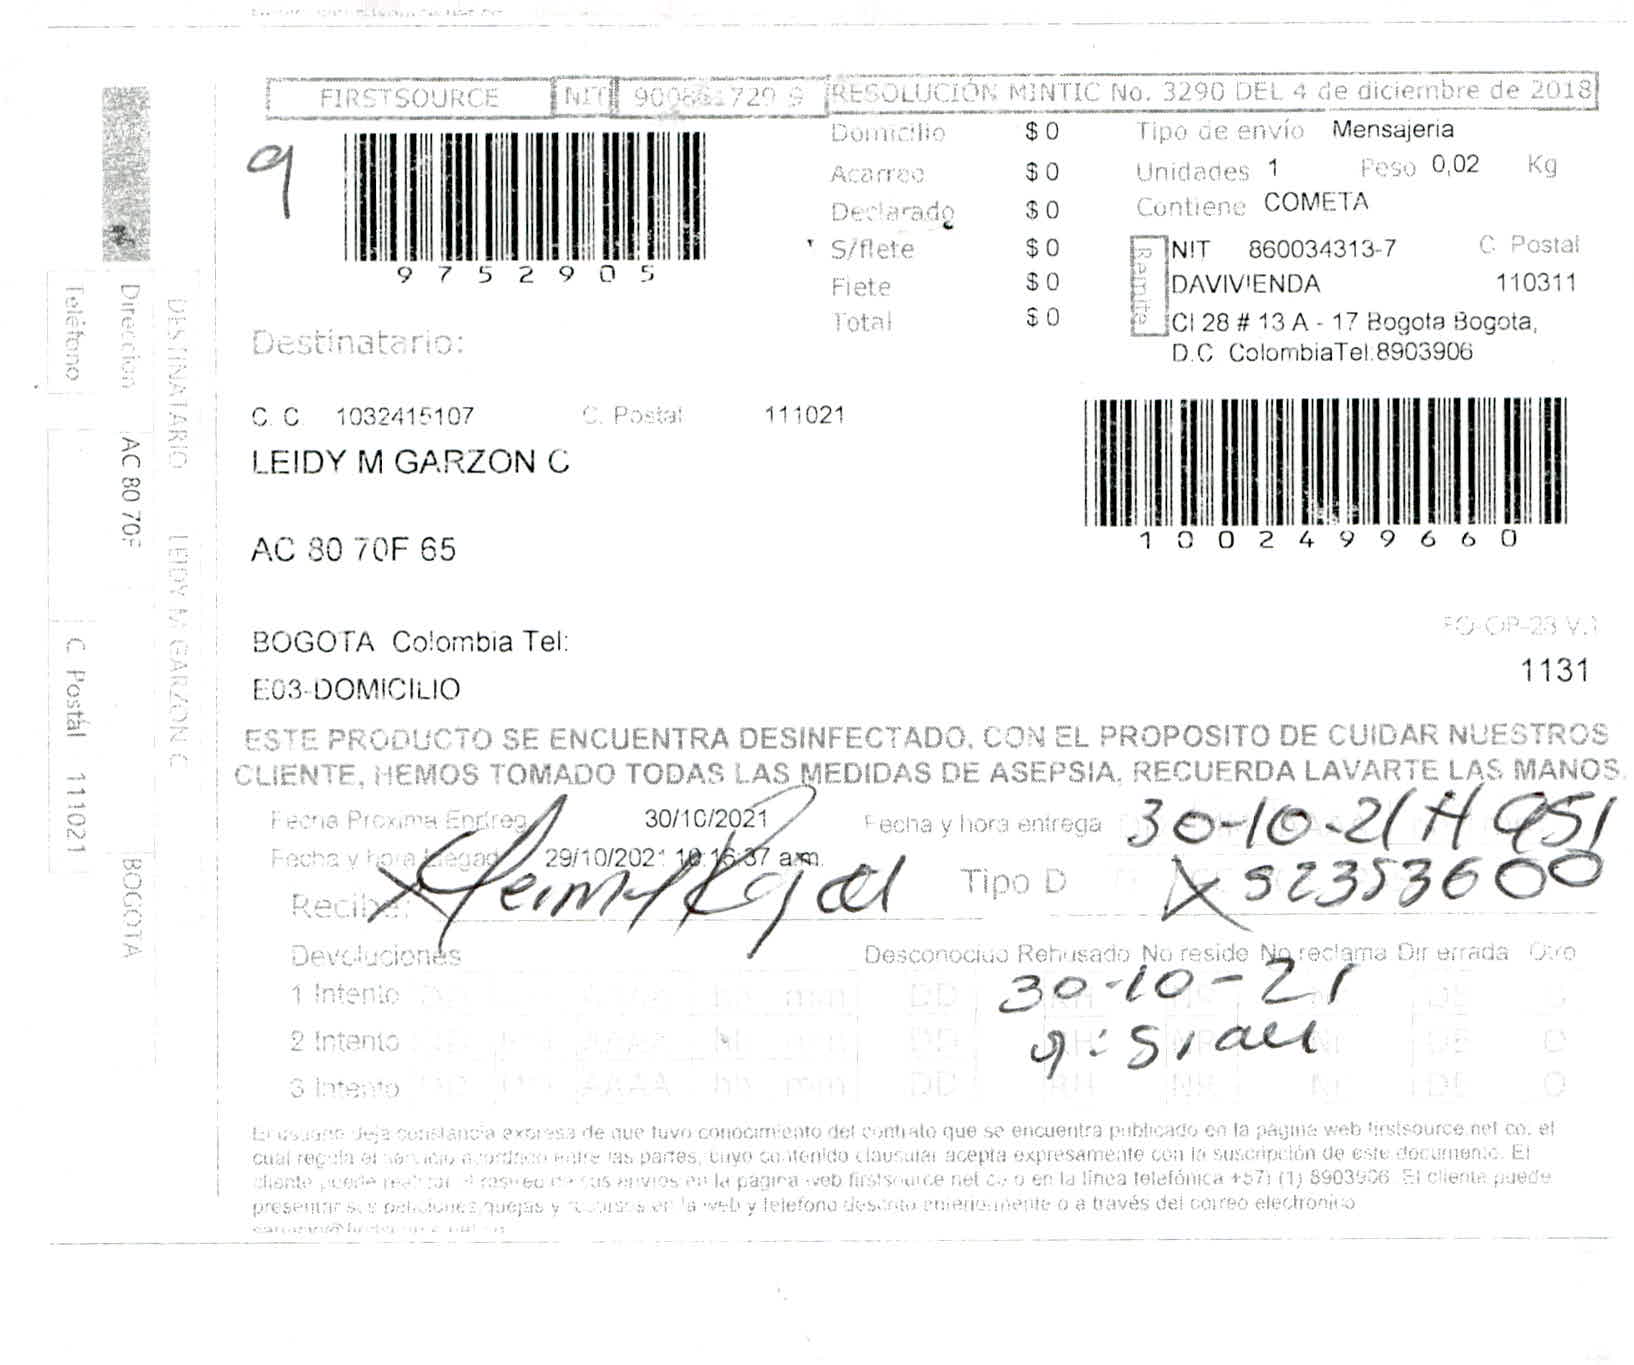 FIRSTSOURCE NIT RESOLUCIÓN MINTIC No. 3290 DEL 4 de diciembre de 2018
9
9752905
Domicilio $ 0
Acarreo $ 0
Declarado $ 0
S/flete $ 0
Flete $ 0
Total $ 0
Tipo de envío Mensajeria
Unidades 1 Peso 0,02 Kg
Contiene COMETA
Remite
NIT 860034313-7 C. Postal
DAVIVIENDA 110311
Cl 28 # 13 A - 17 Bogota Bogota,
D.C ColombiaTel:8903906
Destinatario:
C. C 1032415107 C. Postal 111021
LEIDY M GARZON C
1002499660
AC 80 70F 65
BOGOTA Colombia Tel:
FO-OP-23 V.1
1131
E03-DOMICILIO
ESTE PRODUCTO SE ENCUENTRA DESINFECTADO, CON EL PROPOSITO DE CUIDAR NUESTROS
CLIENTE, HEMOS TOMADO TODAS LAS MEDIDAS DE ASEPSIA, RECUERDA LAVARTE LAS MANOS.
Fecha Proxima Entreg 30/10/2021 Fecha y hora entrega 30-10-21 H 951
Fecha y hora llegad 29/10/2021 10:16:37 a.m.
Recibe: Tipo D X 52353600
Devoluciones Desconocido Rehusado No reside No reclama Dir errada Otro
1 Intento DD AAAA hh mm DD DE O
30-10-21
2 Intento AAAA hh mm DD RH NR NI DE O
3 Intento DD AAAA hh mm DD RH NR NI DE O
El usuario deja constancia expresa de que tuvo conocimiento del contrato que se encuentra publicado en la página web firstsource.net.co, el
cual regula el servicio acordado entre las partes, cuyo contenido clausular acepta expresamente con la suscripción de este documento. El
cliente puede realizar el rastreo de sus envios en la página web firstsource.net.co o en la línea telefónica +57) (1) 8903906. El cliente puede
presentar sus peticiones, quejas y recursos en la web y telefono descrito anteriormente o a través del correo electronico
DESTINATARIO LEIDY M GARZON C
Direccion AC 80 70F BOGOTA
Teléfono C. Postal 111021